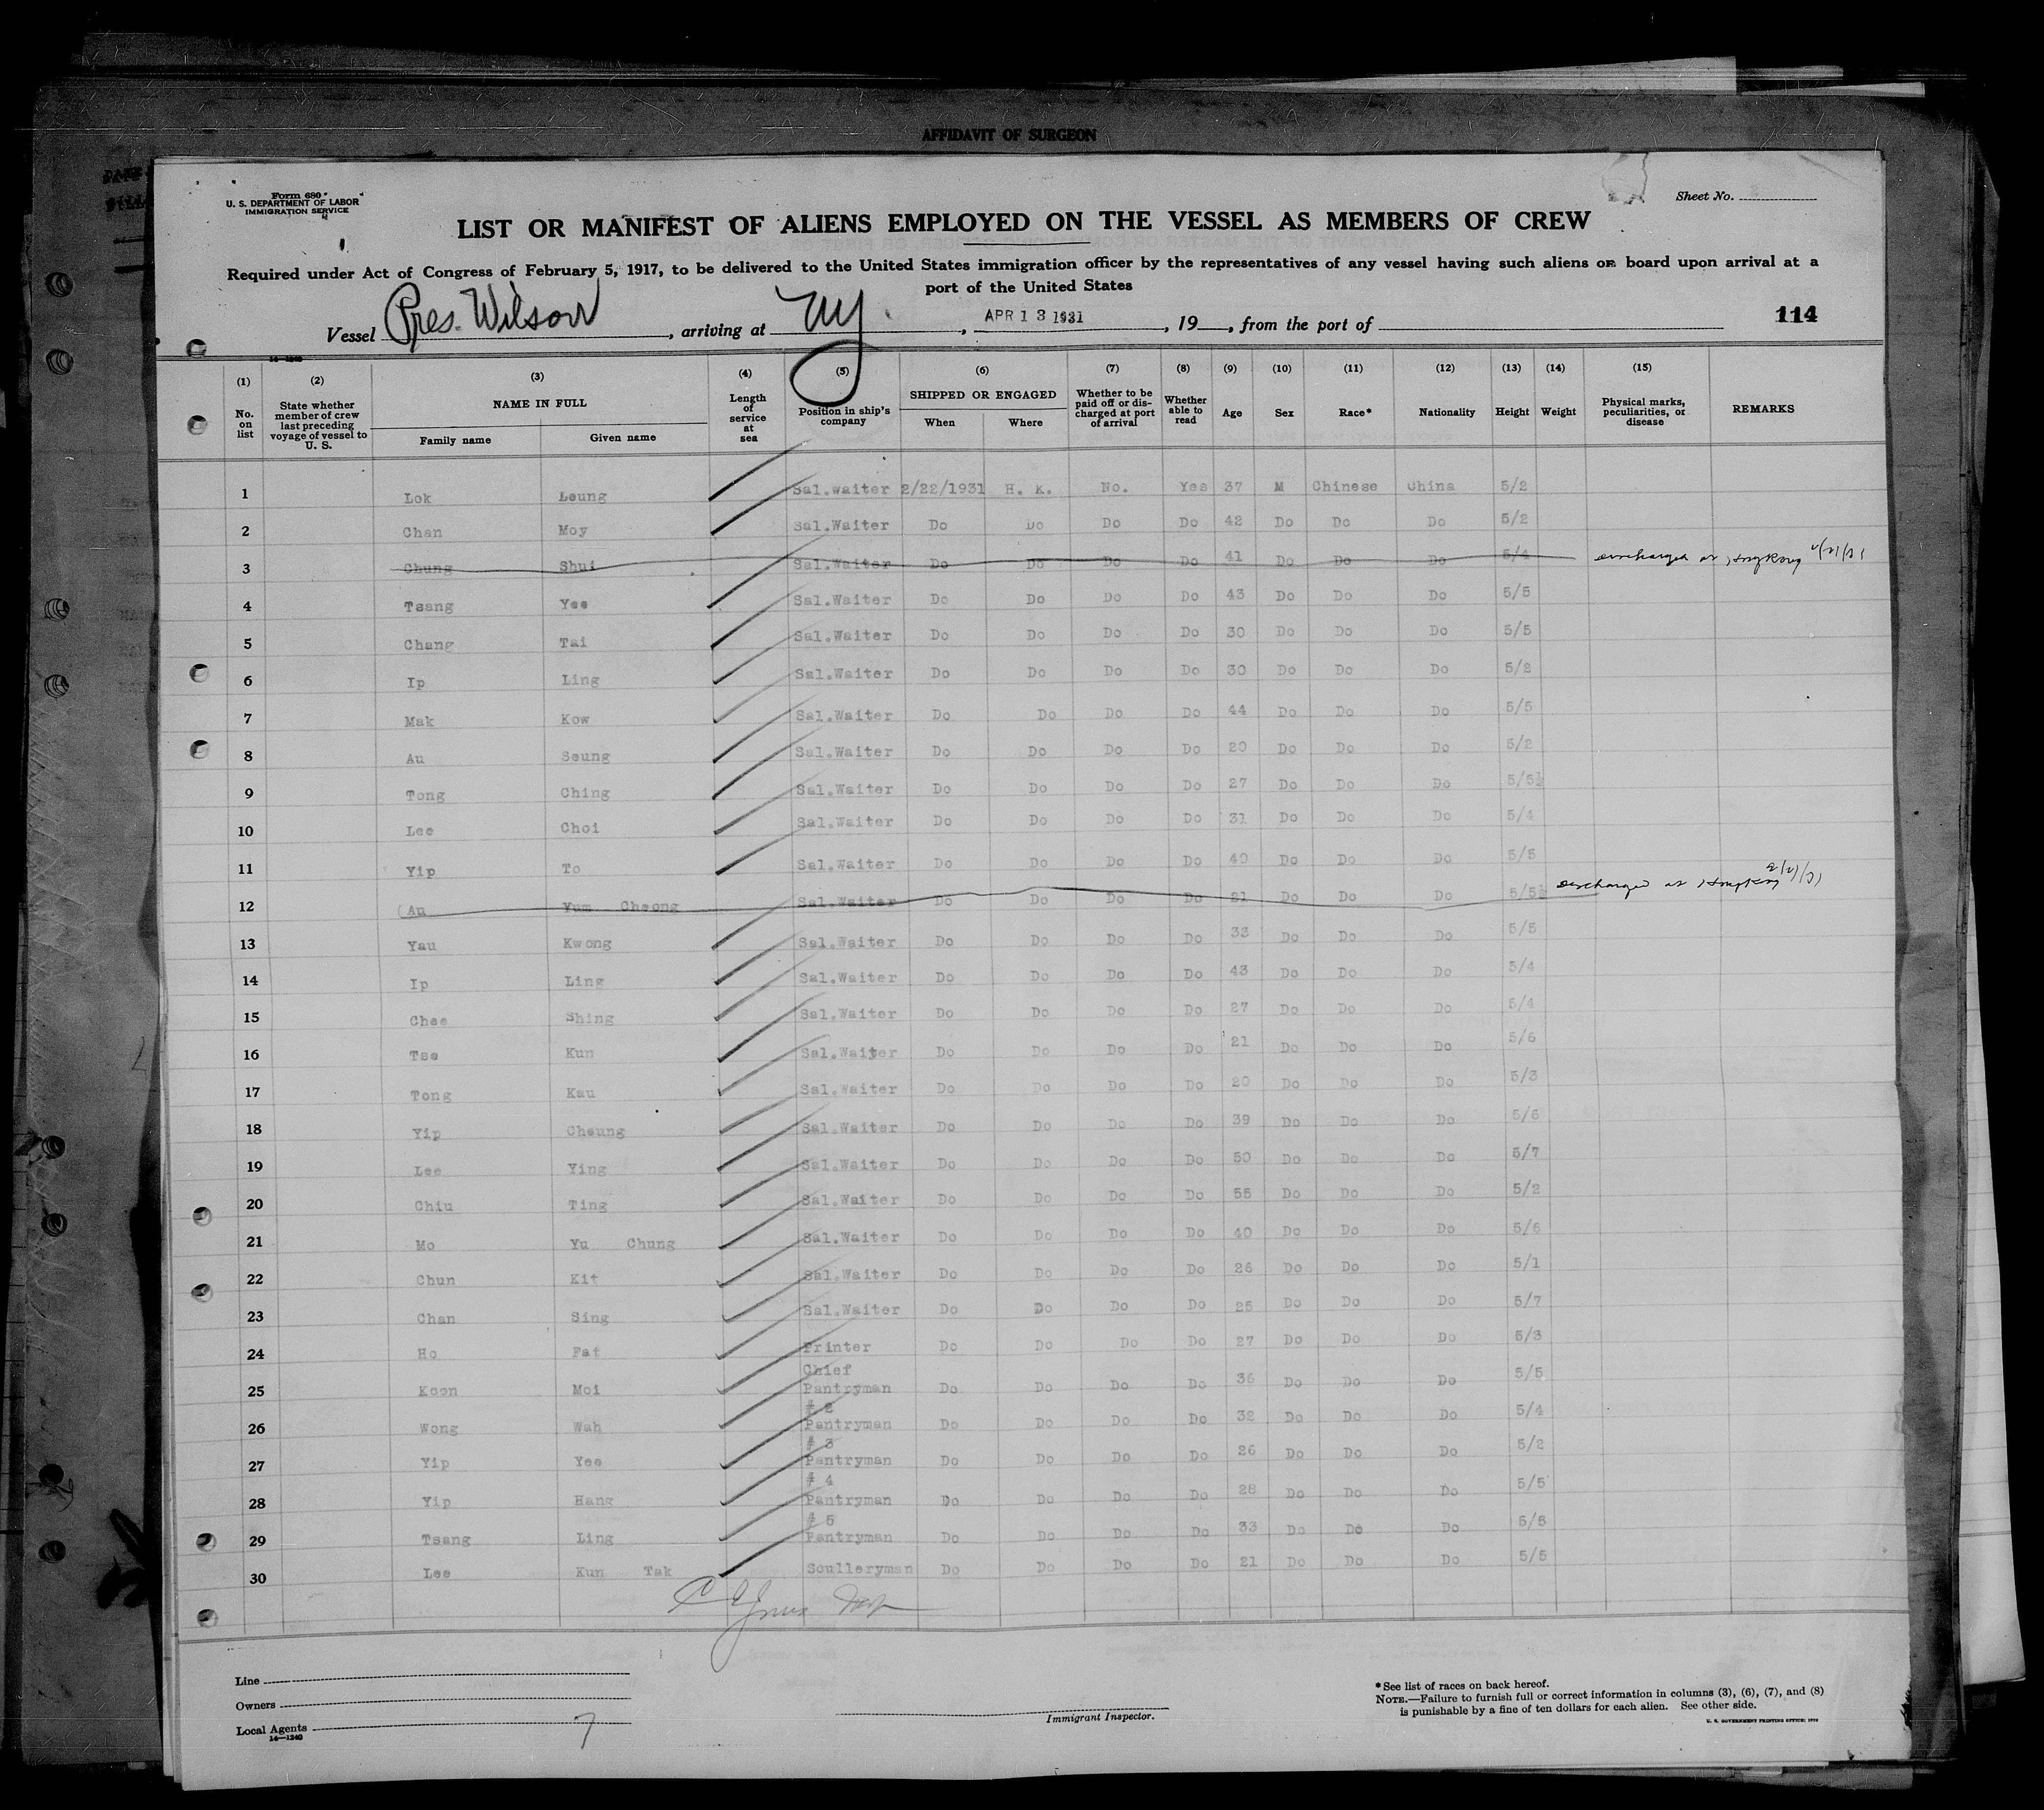 AFFIDAVIT OF SURGEON
Form 680
U. S. DEPARTMENT OF LABOR
IMMIGRATION SERVICE
Sheet No.
LIST OR MANIFEST OF ALIENS EMPLOYED ON THE VESSEL AS MEMBERS OF CREW
Required under Act of Congress of February 5, 1917, to be delivered to the United States immigration officer by the representatives of any vessel having such aliens on board upon arrival at a
port of the United States
Vessel Pres. Wilson, arriving at NY., APR 13 1931, 19__, from the port of
114
(1) No. on list (2) State whether member of crew last preceding voyage of vessel to U. S. (3) NAME IN FULL Family name Given name (4) Length of service at sea (5) Position in ship's company (6) SHIPPED OR ENGAGED When Where (7) Whether to be paid off or discharged at port of arrival (8) Whether able to read (9) Age (10) Sex (11) Race* (12) Nationality (13) Height (14) Weight (15) Physical marks, peculiarities, or disease REMARKS
1 Lok Leung Sal.waiter 2/22/1931 H. K. No. Yes 37 M Chinese China 5/2
2 Chan Moy Sal.Waiter Do Do Do Do 42 Do Do Do 5/2
3 Chung Shui Sal.Waiter Do Do Do Do 41 Do Do Do 5/4 discharged at Hongkong
4 Tsang Yee Sal.Waiter Do Do Do Do 43 Do Do Do 5/5
5 Chang Tai Sal.Waiter Do Do Do Do 30 Do Do Do 5/5
6 Ip Ling Sal.Waiter Do Do Do Do 30 Do Do Do 5/2
7 Mak Kow Sal.Waiter Do Do Do Do 44 Do Do Do 5/5
8 Au Seung Sal.Waiter Do Do Do Do 20 Do Do Do 5/2
9 Tong Ching Sal.Waiter Do Do Do Do 27 Do Do Do 5/5½
10 Lee Choi Sal.Waiter Do Do Do Do 31 Do Do Do 5/4
11 Yip To Sal.Waiter Do Do Do Do 40 Do Do Do 5/5
12 Au Yum Cheong Sal.Waiter Do Do Do Do 21 Do Do Do 5/5½ discharged at Hongkong
13 Yau Kwong Sal.Waiter Do Do Do Do 33 Do Do Do 5/5
14 Ip Ling Sal.Waiter Do Do Do Do 43 Do Do Do 5/4
15 Chee Shing Sal.Waiter Do Do Do Do 27 Do Do Do 5/4
16 Tse Kun Sal.Waiter Do Do Do Do 21 Do Do Do 5/6
17 Tong Kau Sal.Waiter Do Do Do Do 20 Do Do Do 5/3
18 Yip Cheung Sal.Waiter Do Do Do Do 39 Do Do Do 5/6
19 Lee Ying Sal.Waiter Do Do Do Do 50 Do Do Do 5/7
20 Chiu Ting Sal.Waiter Do Do Do Do 55 Do Do Do 5/2
21 Mo Yu Chung Sal.Waiter Do Do Do Do 40 Do Do Do 5/6
22 Chun Kit Sal.Waiter Do Do Do Do 26 Do Do Do 5/1
23 Chan Sing Sal.Waiter Do Do Do Do 25 Do Do Do 5/7
24 Ho Fat Printer Do Do Do Do 27 Do Do Do 5/3
25 Koon Moi Chief Pantryman Do Do Do Do 36 Do Do Do 5/5
26 Wong Wah # 2 Pantryman Do Do Do Do 32 Do Do Do 5/4
27 Yip Yee # 3 Pantryman Do Do Do Do 26 Do Do Do 5/2
28 Yip Hang # 4 Pantryman Do Do Do Do 28 Do Do Do 5/5
29 Tsang Ling # 5 Pantryman Do Do Do Do 33 Do Do Do 5/5
30 Lee Kun Tak Sculleryman Do Do Do Do 21 Do Do Do 5/5
Line
Owners
Local Agents
14—1240
7
Immigrant Inspector.
*See list of races on back hereof.
NOTE.—Failure to furnish full or correct information in columns (3), (6), (7), and (8)
is punishable by a fine of ten dollars for each alien. See other side.
U. S. GOVERNMENT PRINTING OFFICE: